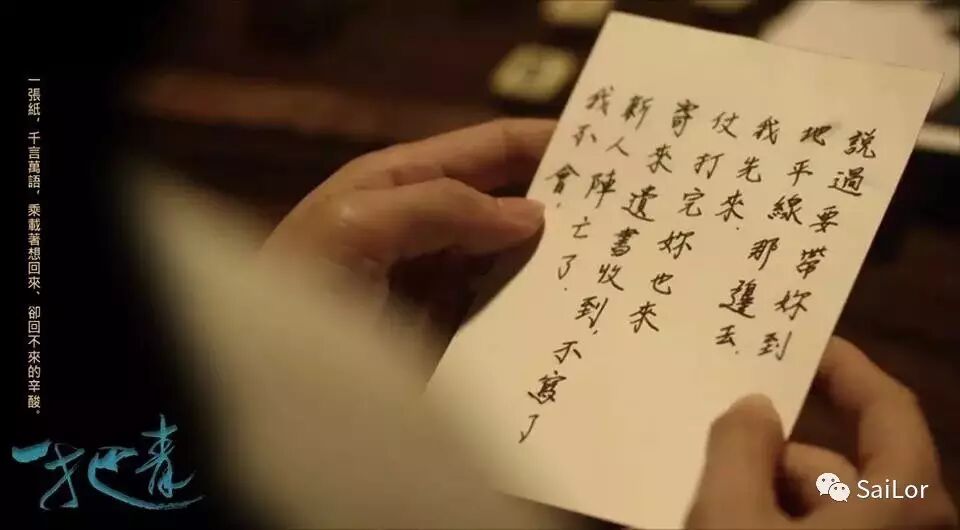 說過要帶妳到
地平線那邊去,
我先來.
仗打完妳也來
寄來遺書收到,不寫了
新人陣亡了.
我不會.
一張紙，千言萬語，乘載著想回來、卻回不來的辛酸。
一把青
SaiLor